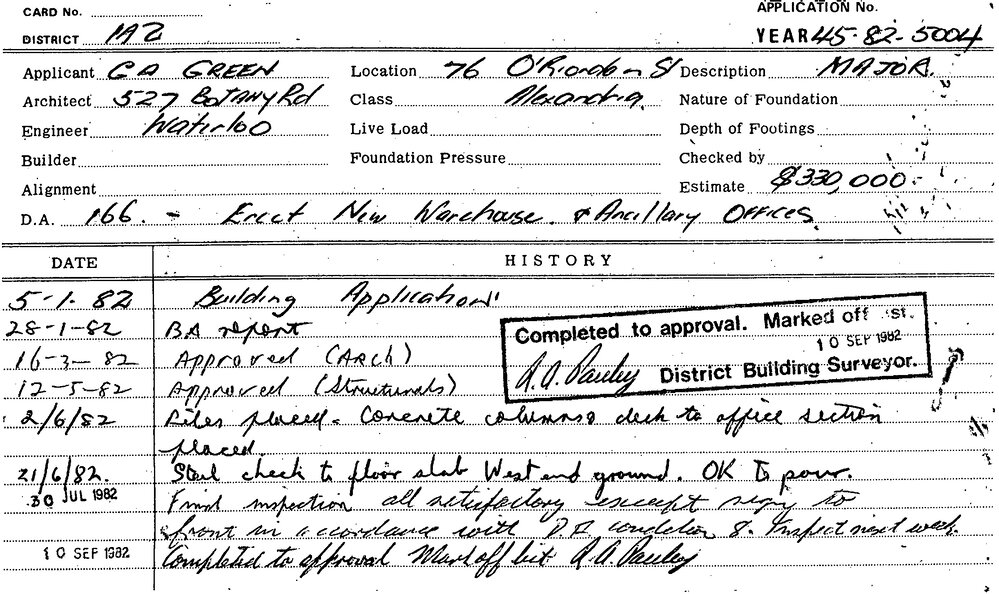 CARD No.
APPLICATION No.
DISTRICT 1A2
YEAR 45-82-5004
Applicant G A GREEN Location 76 O'Riordan St Description MAJOR.
Architect 527 Botany Rd Class Alexandria Nature of Foundation
Engineer Waterloo Live Load Depth of Footings
Builder Foundation Pressure Checked by
Alignment Estimate $330,000.
D.A. 166. - Erect New Warehouse & Ancillary Offices
DATE HISTORY
5-1-82 Building Application
28-1-82 BA report
16-3-82 Approved (Arch)
12-5-82 Approved (Structurals)
Completed to approval. Marked off st.
10 SEP 1982
R.A. Pauley District Building Surveyor.
2/6/82 placed. Concrete columns & deck to office section
placed.
21/6/82. Steel check to floor slab West end ground. OK to pour.
30 JUL 1982 Final inspection all satisfactory except to
front in accordance with D.A condition 8. Inspect next week.
10 SEP 1982 Completed to approval Mark off list R.A. Pauley